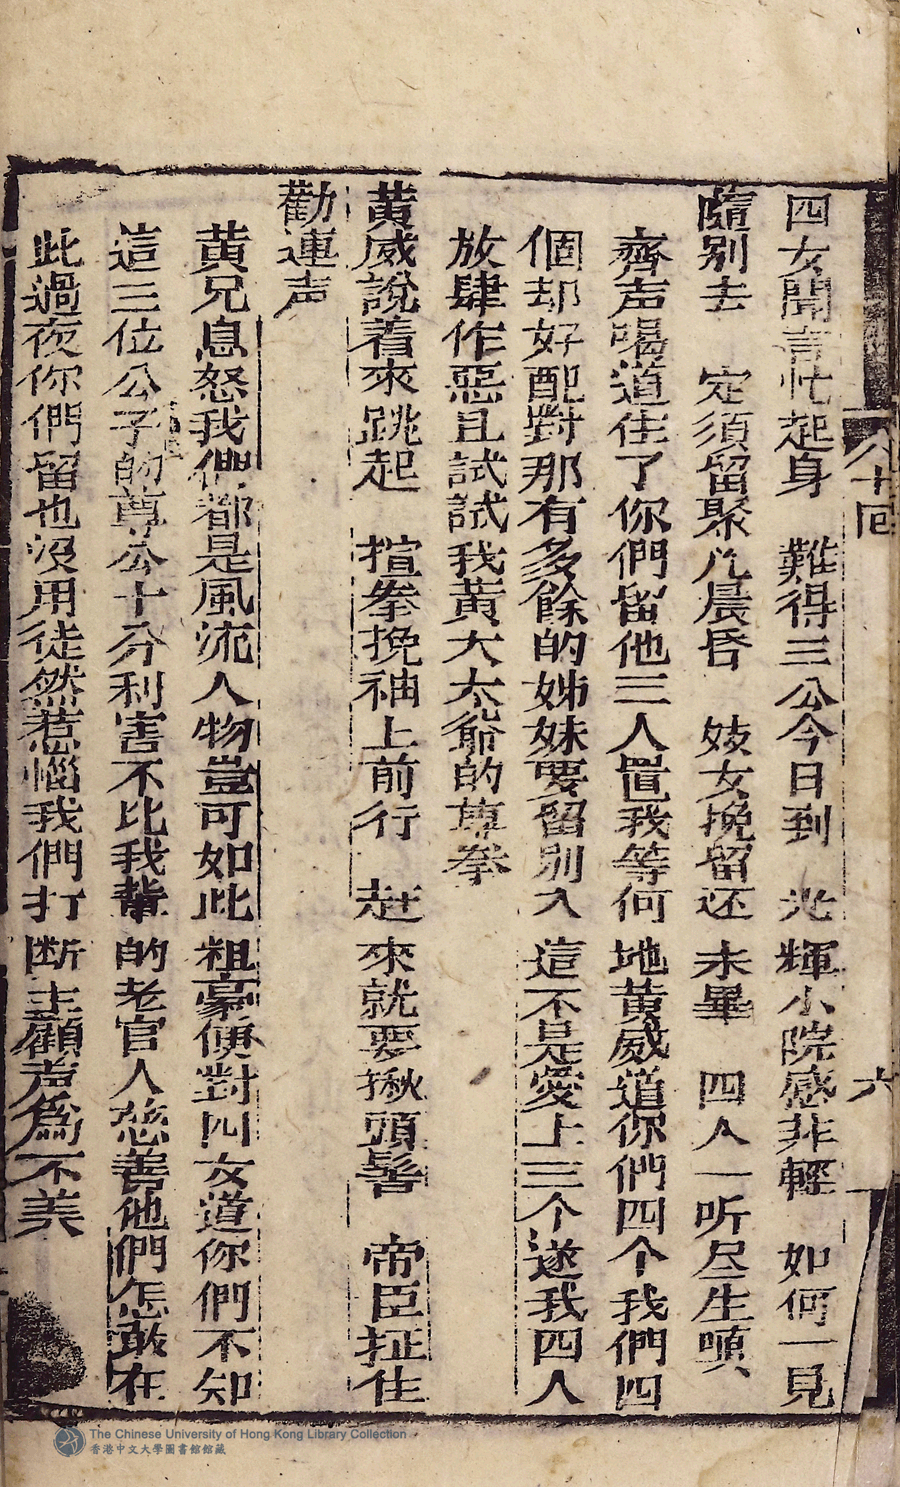 八十回
六
四女聞言忙起身　難得三公今日到　光輝小院感非輕　如何一見
隨别去　定須留聚幾晨昏　妓女挽留还未畢　四人一听尽生嗔
齊声喝道住了你們留他三人置我等何地黄威道你們四个我們四
個却好配對那有多餘的姊妹要留别人這不是愛上三个遂我四人
放肆作惡且試試我黄大太爺的尊拳
黄威說着來跳起　揎拳挽袖上前行　赶來就要揪頭髻　帝臣扯住
勸連声
黄兄息怒我們都是風流人物豈可如此粗豪便對四女道你們不知
這三位公子的尊公十分利害不比我輩的老官人慈善他們怎敢在
此過夜你們留也没用徒然惹惱我們打断主顧声為不美
The Chinese University of Hong Kong Library Collection
香港中文大學圖書館館藏